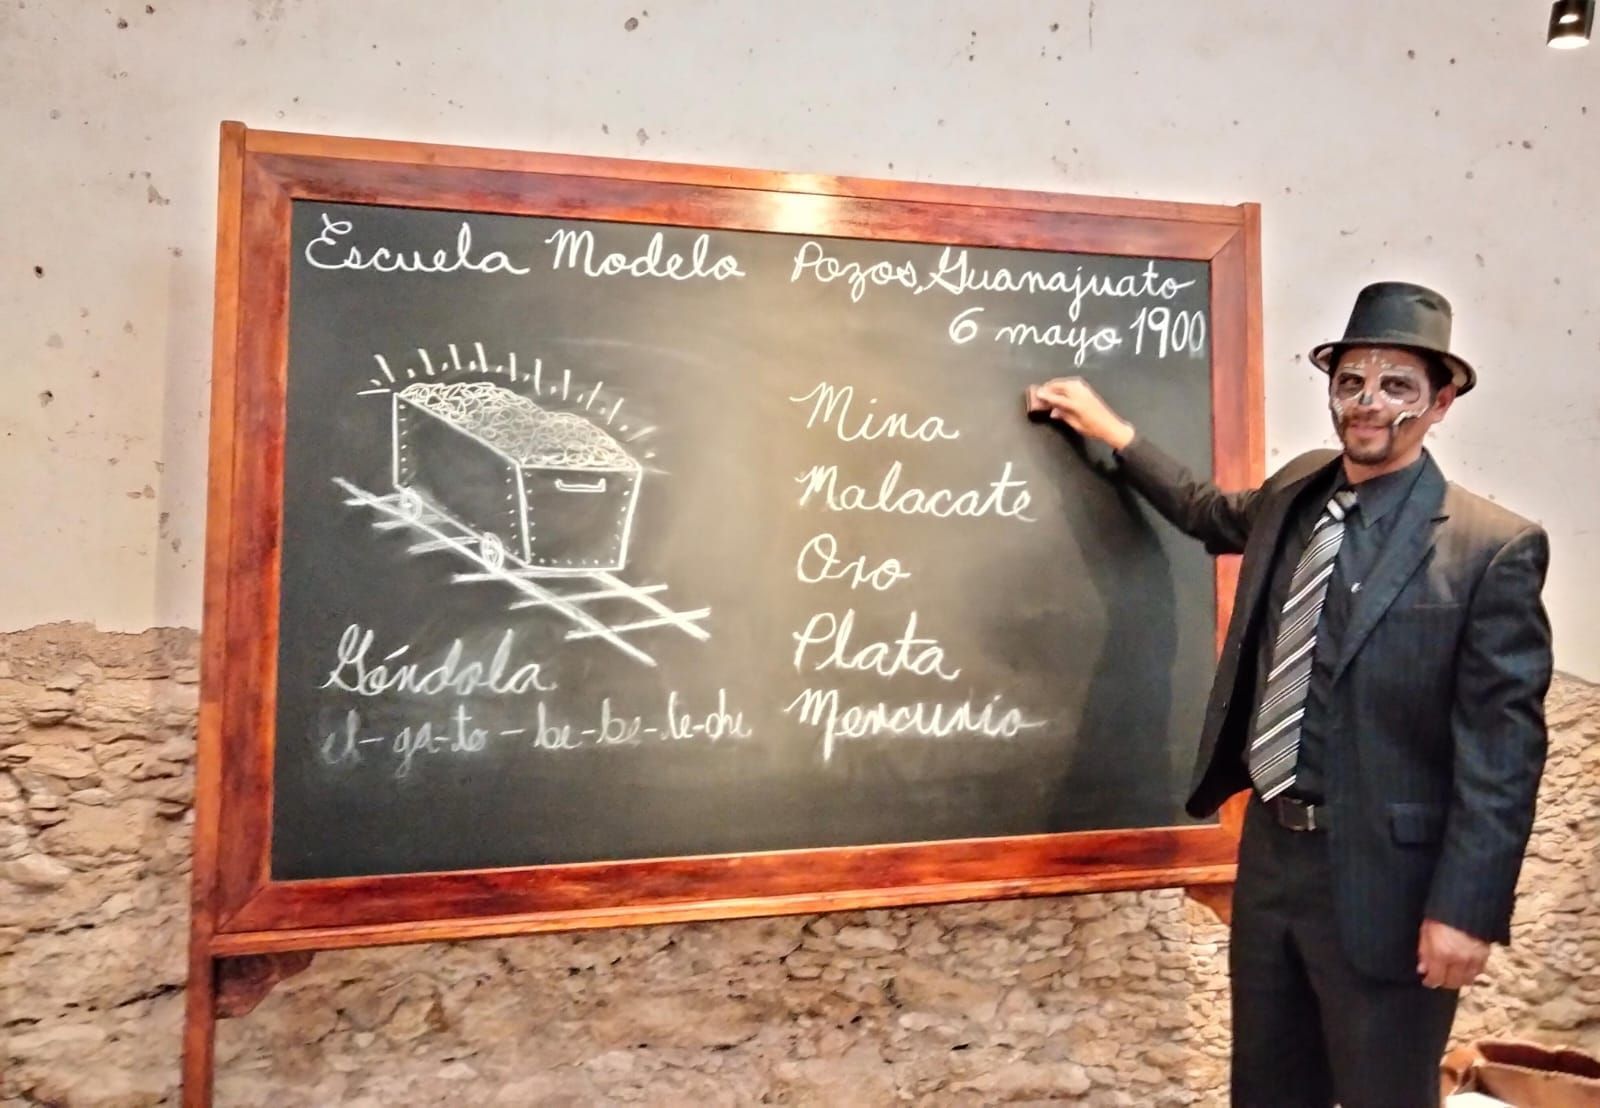 Escuela Modelo Pozos, Guanajuato
6 mayo 1900
Mina
Malacate
Oro
Plata
Mercurio
Góndola
el-ga-to-be-be-le-che